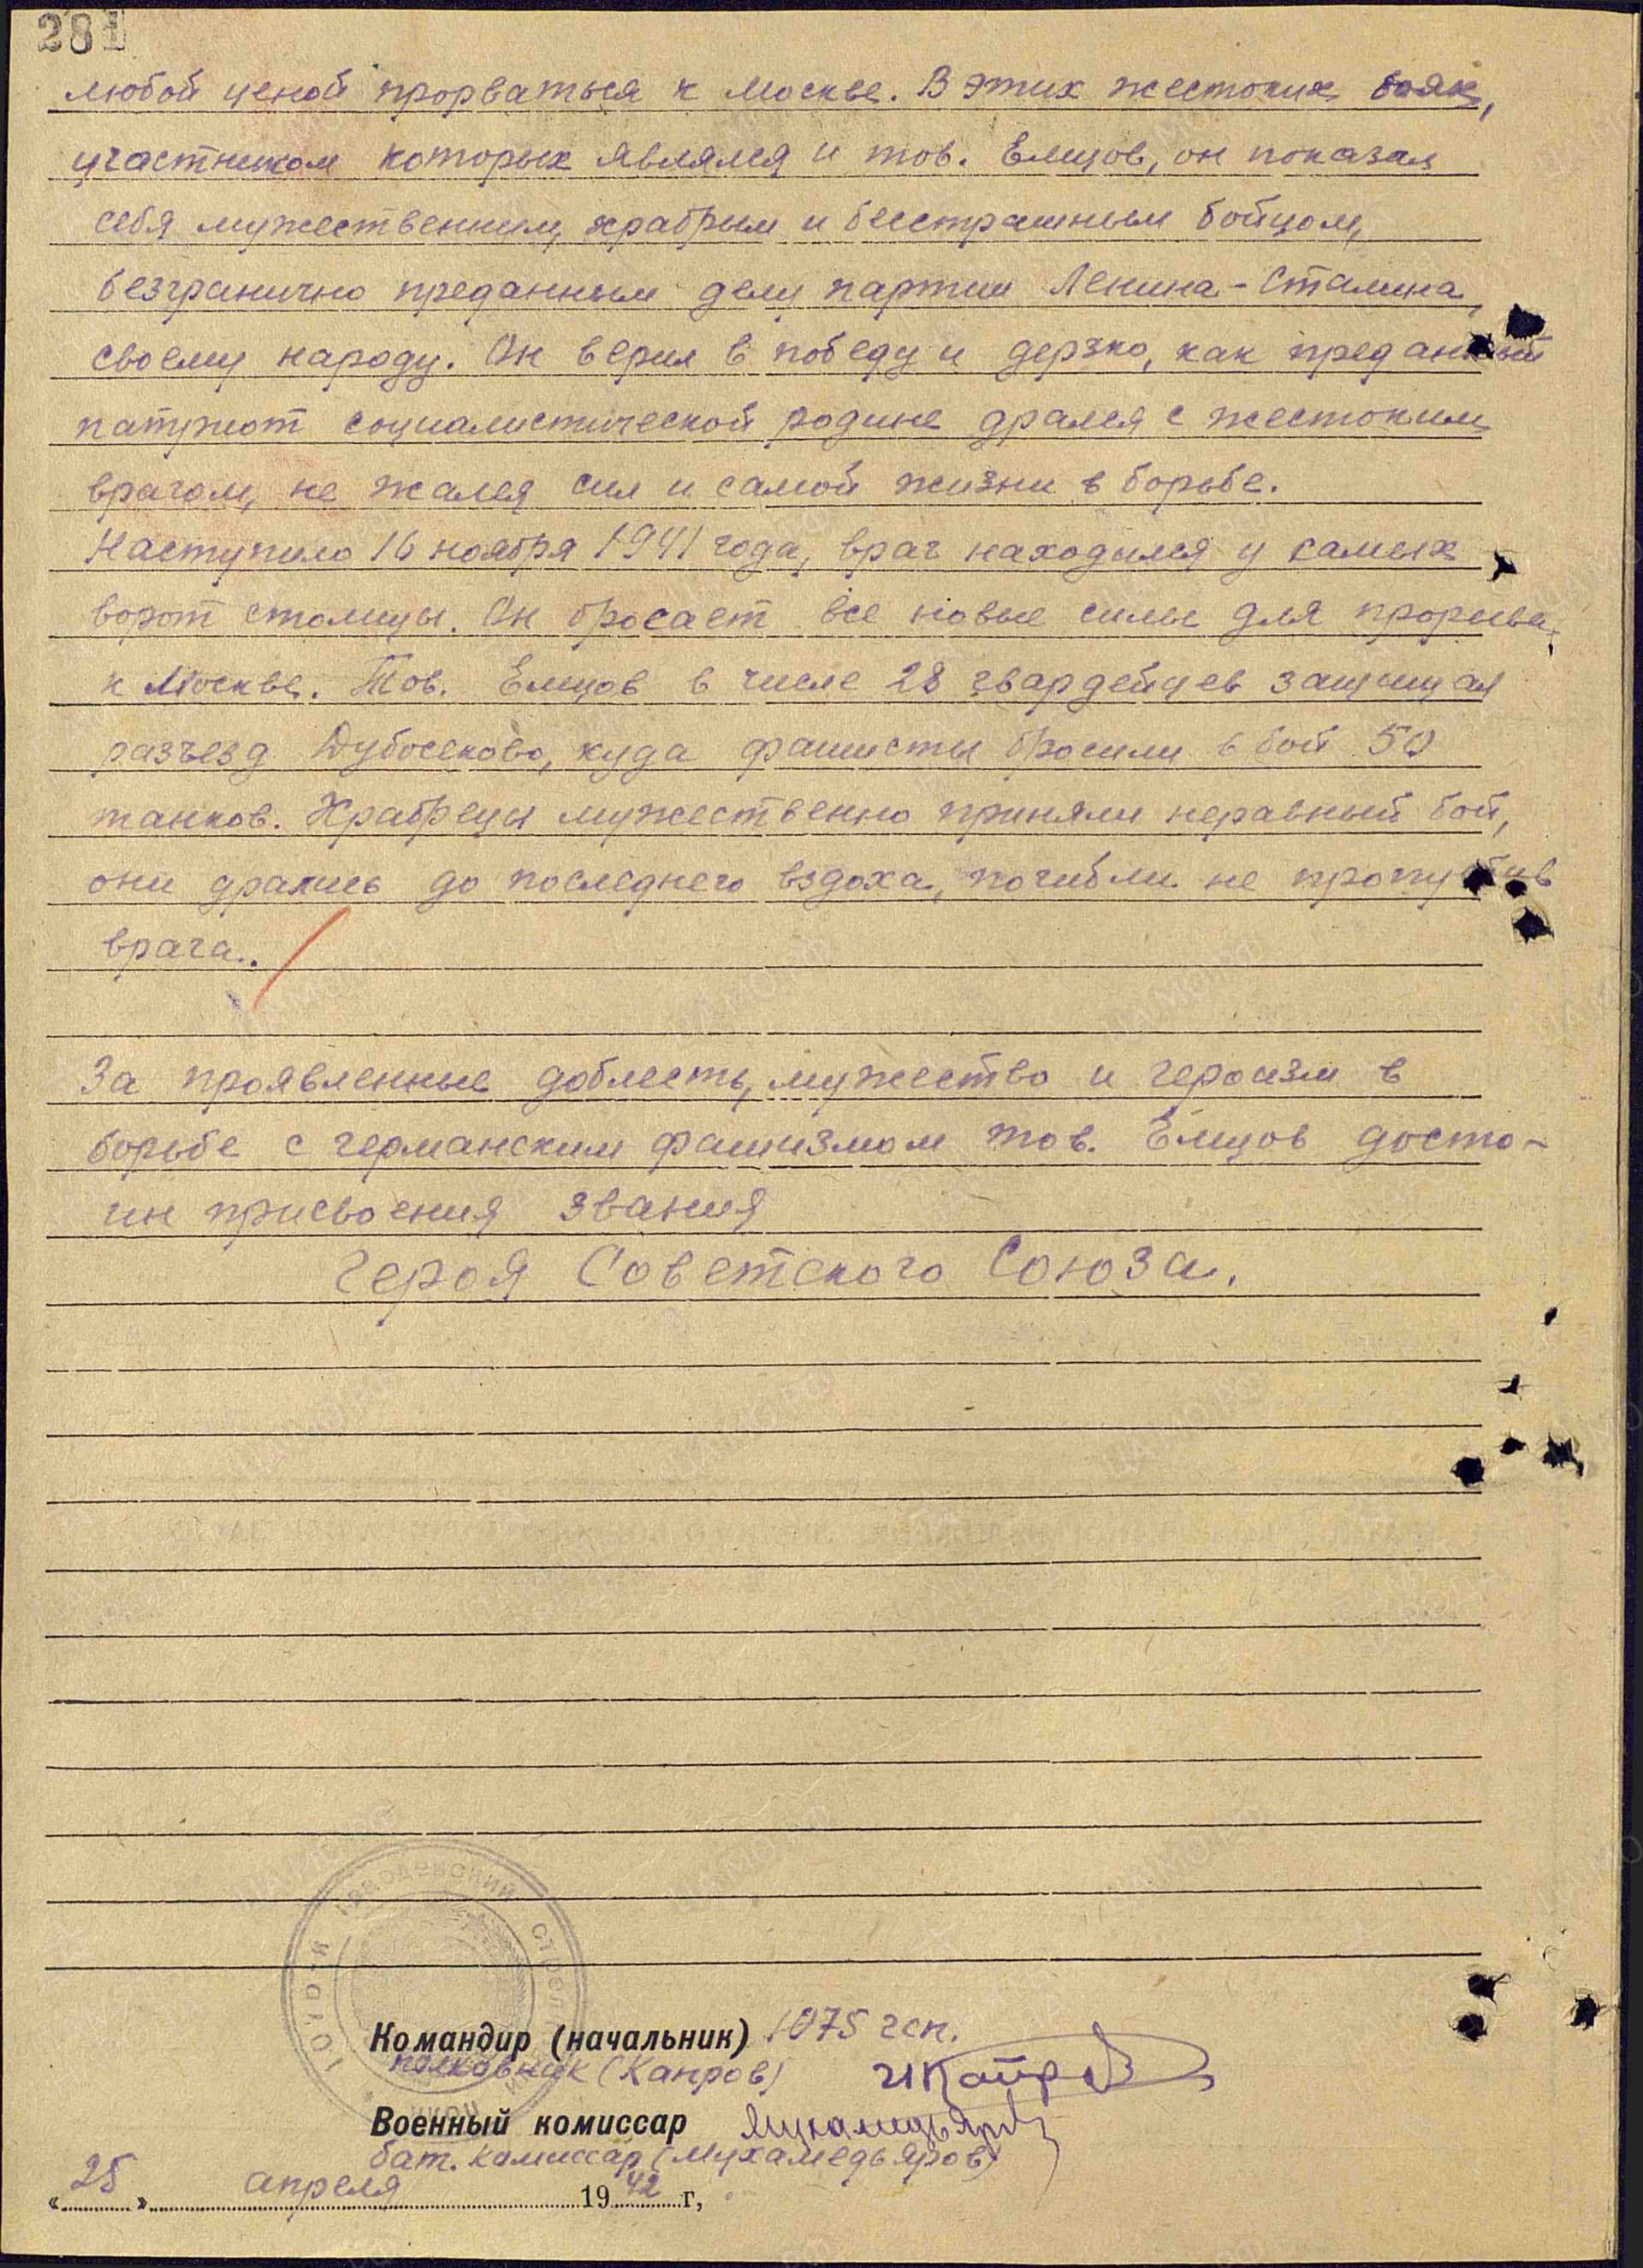 281
любой ценой прорваться к Москве. В этих жестоких боях,
участником которых являлся и тов. Емцов, он показал
себя мужественным, храбрым и бесстрашным бойцом,
безгранично преданным делу партии Ленина-Сталина,
своему народу. Он верил в победу и дерзко, как преданный
патриот социалистической родине дрался с жестоким
врагом, не жалея сил и самой жизни в борьбе.
Наступило 16 ноября 1941 года, враг находился у самых
ворот столицы. Он бросает все новые силы для прорыва
к Москве. Тов. Емцов в числе 28 гвардейцев защищал
разъезд Дубосеково, куда фашисты бросили в бой 50
танков. Храбрецы мужественно приняли неравный бой,
они дрались до последнего вздоха, погибли не пропустив
врага..
За проявленные доблесть, мужество и героизм в
борьбе с германским фашизмом тов. Емцов досто-
ин присвоения звания
Героя Советского Союза.
Командир (начальник) 1075 гсп.
полковник (Капров) ИКапров
Военный комиссар Мухамедьяров
бат. комиссар (Мухамедьяров)
«25» апреля 1942 г,